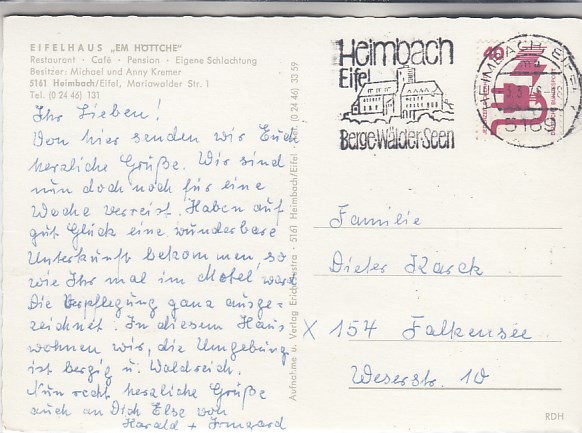 EIFELHAUS „EM HÖTTCHE"
Restaurant · Café · Pension · Eigene Schlachtung
Besitzer: Michael und Anny Kremer
5161 Heimbach/Eifel, Mariawalder Str. 1
Tel. (0 24 46) 131
Ihr Lieben!
Von hier senden wir Euch
herzliche Grüße. Wir sind
nun doch noch für eine
Woche verreist. Haben auf
gut Glück eine wunderbare
Unterkunft bekommen, so
wie Ihr mal im Motel wart.
Die Verpflegung ganz ausge-
zeichnet. In diesem Haus
wohnen wir, die Umgebung
ist bergig u. Waldreich.
Nun recht herzliche Grüße
auch an Dich Else von
Harald + Irmgard
Aufnahme u. Verlag · 5161 Heimbach/Eifel · Tel. (0 24 46) 33 59
Heimbach
Eifel
Berge-Wälder-Seen
40
5169
Familie
Dieter Karck
X 154 Falkensee
Weserstr. 10
RDH